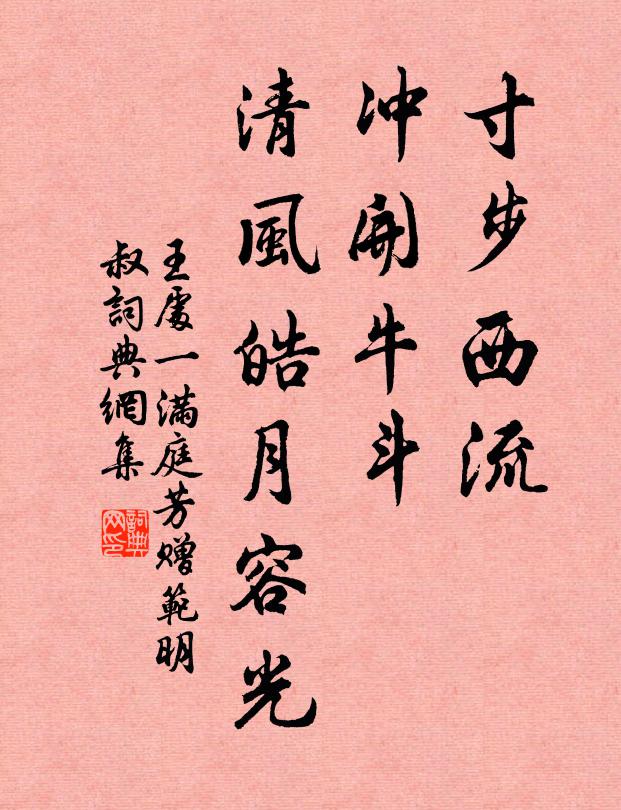 寸步西流
冲開牛斗
清風皓月容光
王處一滿庭芳赠範明
叔詞典網集
詞典网印